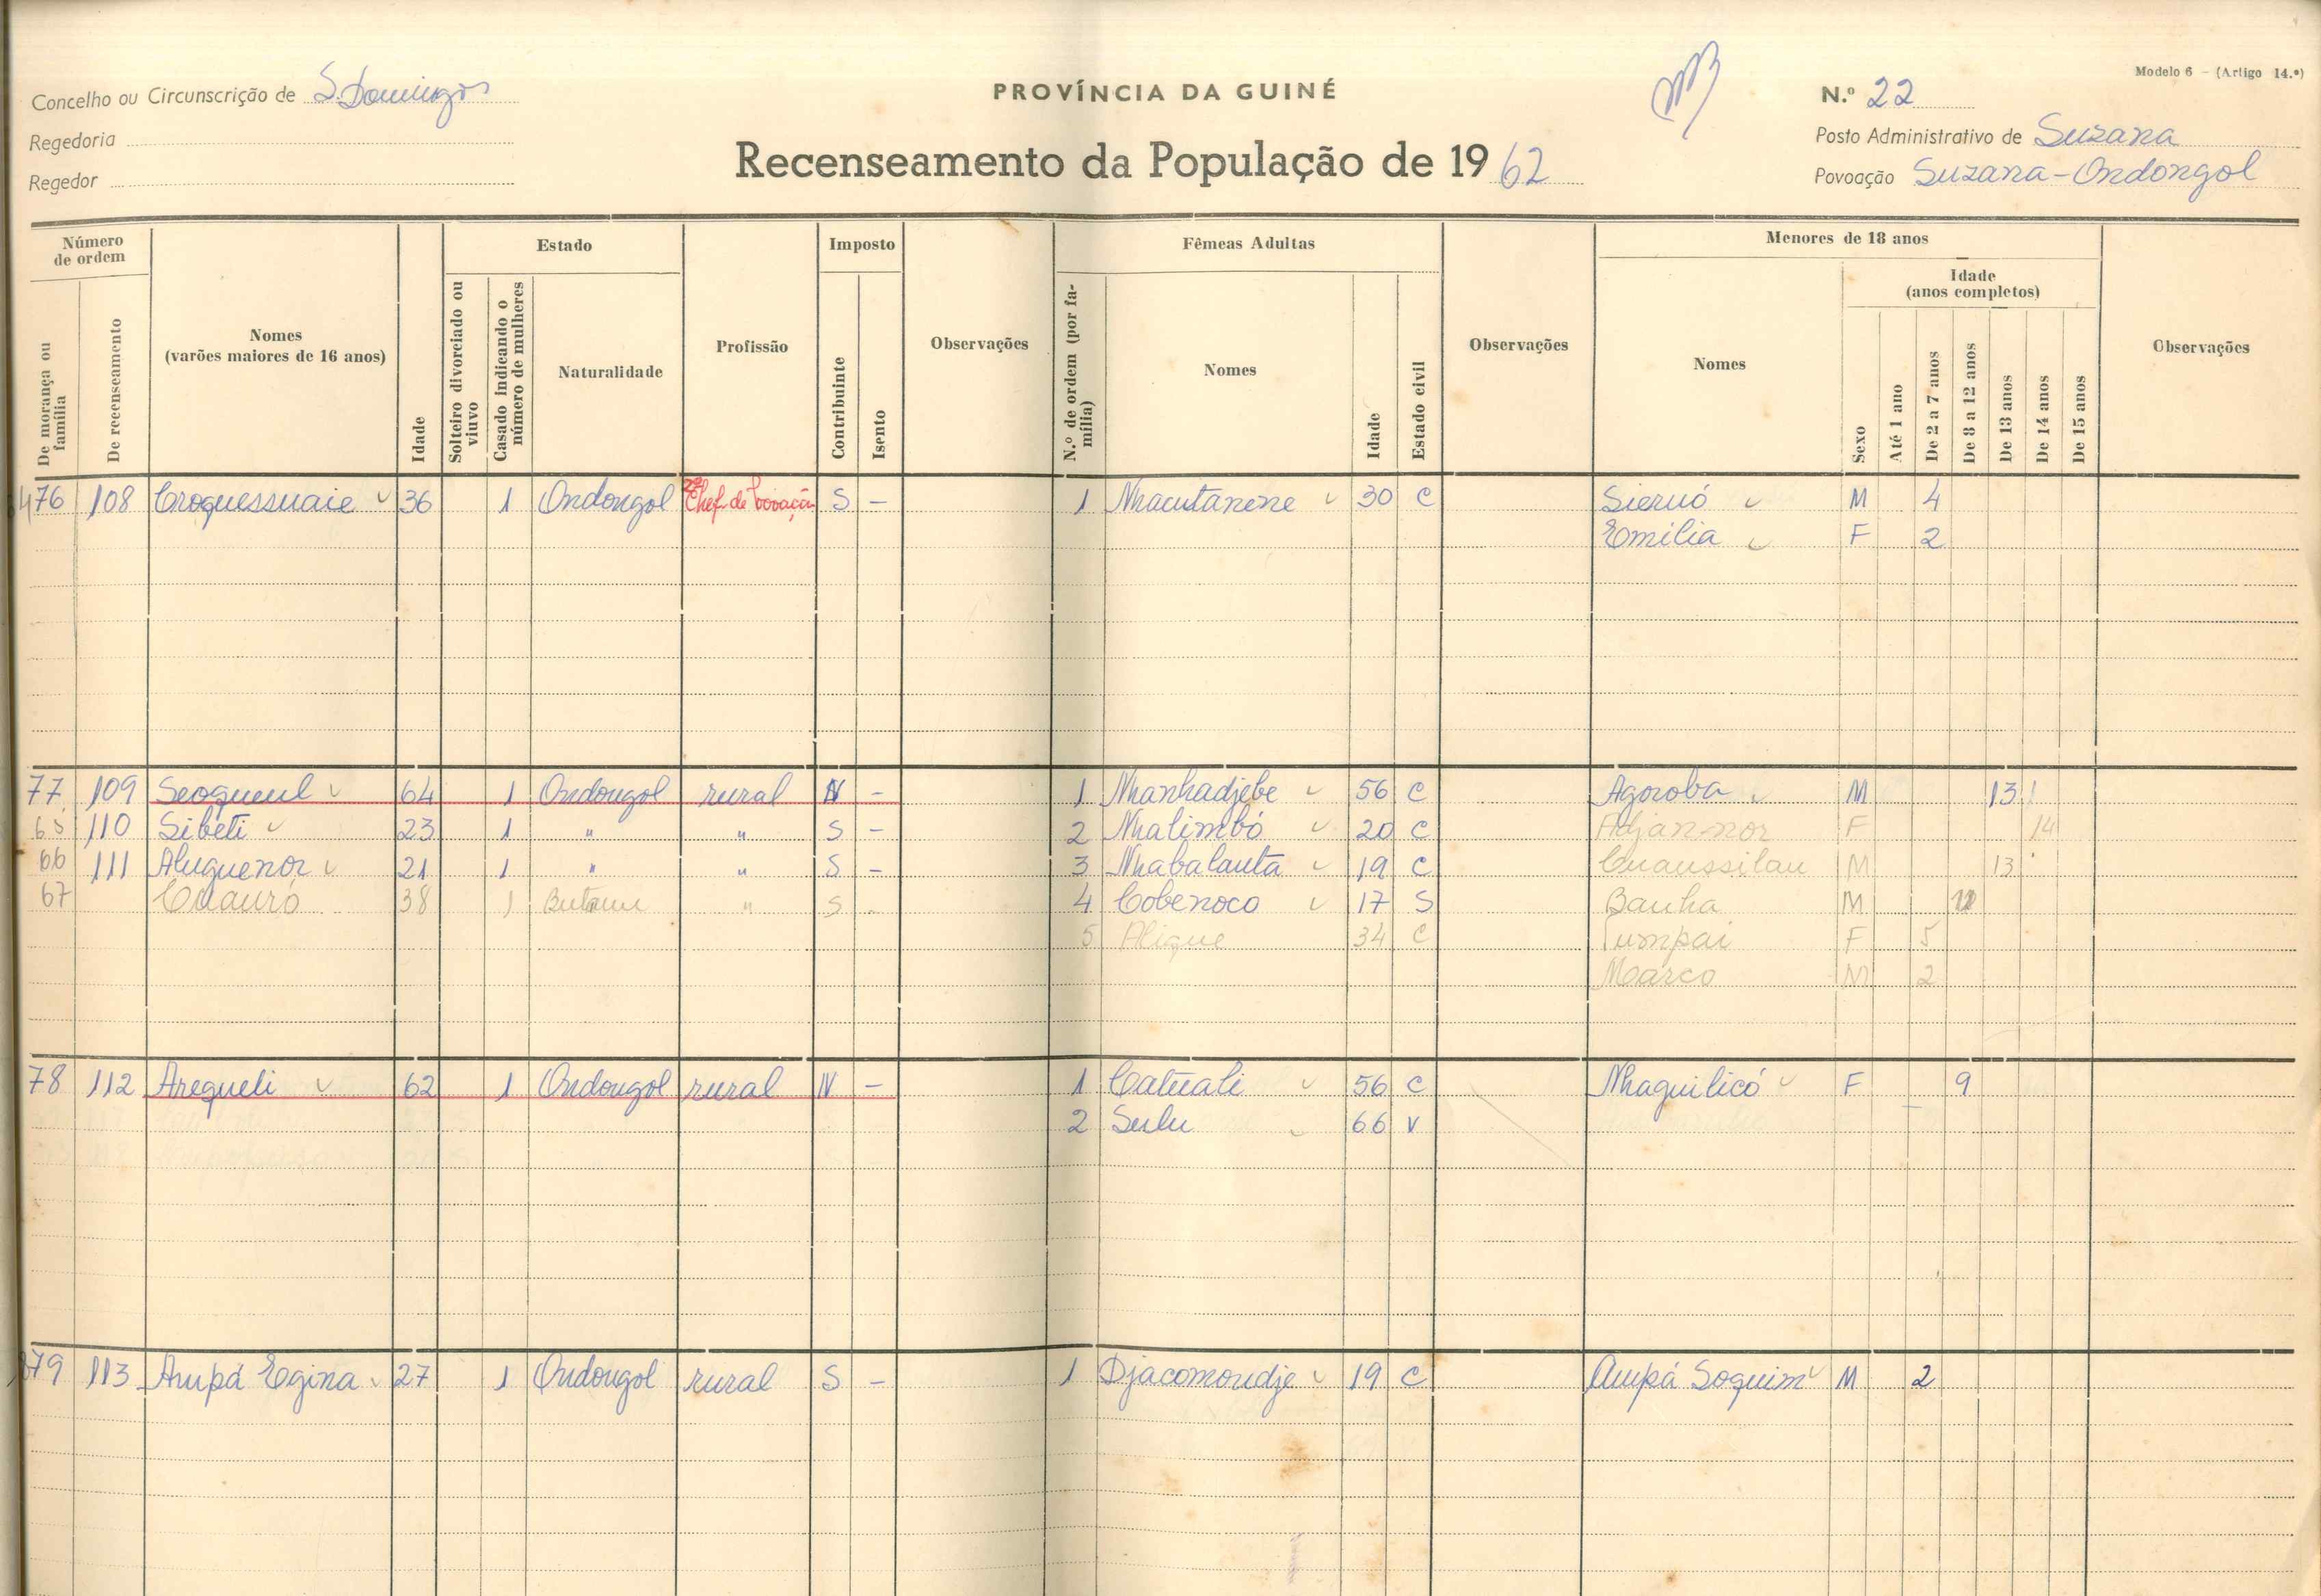 Modelo 6 - (Artigo 14.º)
Concelho ou Circunscrição de S. Domingos
PROVÍNCIA DA GUINÉ
N.º 22
Regedoria
Posto Administrativo de Suzana
Regedor
Recenseamento da População de 1962
Povoação Suzana-Ondongol
Número de ordem
De morança ou família
De recenseamento
Nomes
(varões maiores de 16 anos)
Idade
Estado
Solteiro divorciado ou viuvo
Casado indicando o número de mulheres
Naturalidade
Profissão
Imposto
Contribuinte
Isento
Observações
Fêmeas Adultas
N.º de ordem (por família)
Nomes
Idade
Estado civil
Observações
Menores de 18 anos
Nomes
Sexo
Idade
(anos completos)
Até 1 ano
De 2 a 7 anos
De 8 a 12 anos
De 13 anos
De 14 anos
De 15 anos
Observações
476 108 Croquessuaie 36 1 Ondongol S - 1 Nhacutanene 30 C Sieruó M 4
Emilia F 2
77 109 Seogueul 64 1 Ondongol rural N - 1 Nhanhadjebe 56 C Agoroba M 13
65 110 Sibeti 23 1 " " S - 2 Nhalimbó 20 C Adjannor F 14
66 111 Aluguenor 21 1 " " S - 3 Nhabalanta 19 C Cuaussilau M 13
67 Cuauró 38 1 " S 4 Cobenoco 17 S Banha M
5 Alique 34 C Tumpai F 5
Marco M 2
78 112 Aregueli 62 1 Ondongol rural N - 1 Catuali 56 C Nhaguilicó F 9
2 Sulu 66 V
79 113 Ampá Egina 27 1 Ondongol rural S - 1 Djacomondje 19 C Ampá Soquim M 2